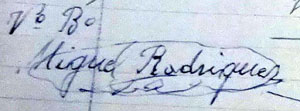 Vº Bº
Miguel Rodriguez